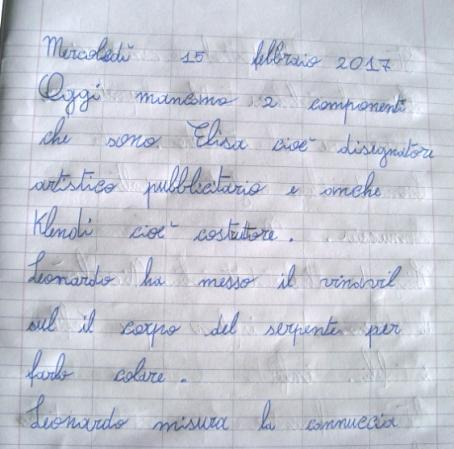 Mercoledì 15 febbraio 2017
Oggi mancano 2 componenti
che sono Elisa cioè disegnatore
artistico pubblicitario e anche
Klendi cioè costrttore.
Leonardo ha messo il vinavil
sul il corpo del serpente per
farlo colare.
Leonardo misura la cannuccia